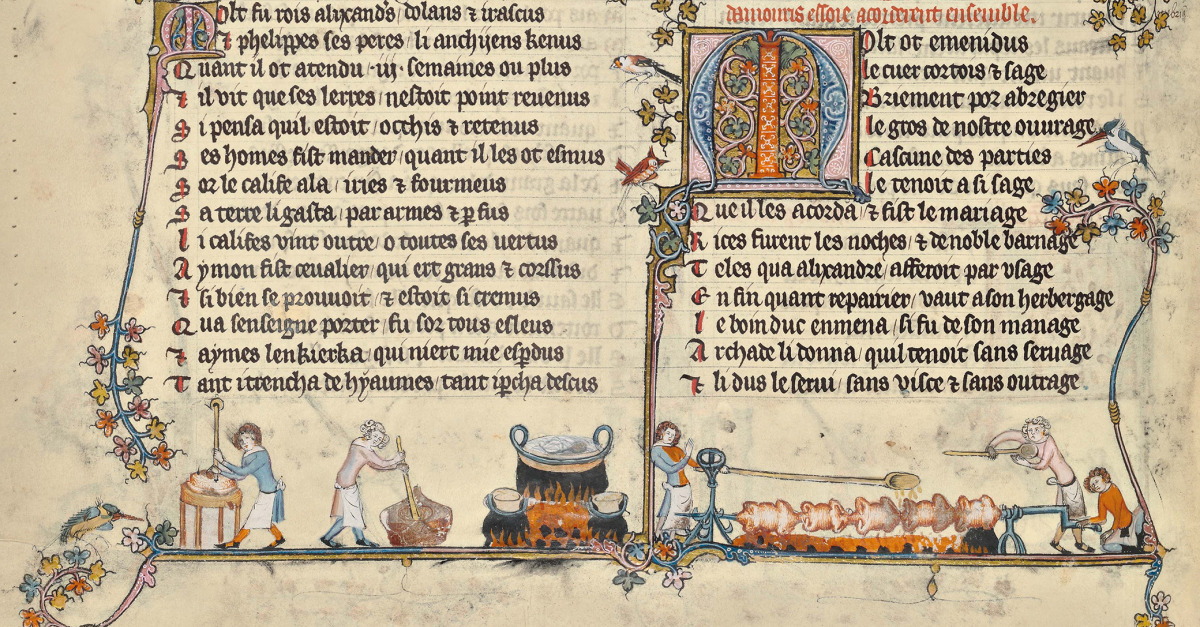 Molt fu rois alixand's dolans ⁊ irascus
⁊ phelippes ses peres / li anchijens kenus
Quant il ot atendu ·iij· semaines ou plus
⁊ il vit que ses lerres / nestoit point reuenus
Si pensa quil estoit / occhis ⁊ retenus
Ses homes fist mander / quant il les ot esmus
Sor le calife ala / iries ⁊ fourmeus
Sa terre li gasta / par armes ⁊ p fus
Li califes vint outre / o toutes ses vertus
Aymon fist ceualier / qui ert grans ⁊ corssus
⁊ si bien se prouuoit / ⁊ estoit si cremus
Qua senseigne porter / fu sor tous esleus
⁊ aymes lenkierka / qui niert mie espdus
Tant i trencha de hyaumes / tant i pcha descus
damouris essoie acorderent ensemble.
Molt ot emenidus
le cuer cortois ⁊ sage
Briement por abregier
le gros de nostre ouurage
Cascune des parties
le tenoit a si sage
Que il les acorda / ⁊ fist le mariage
Rices furent les noches / ⁊ de noble barnage
Teles qua alixandre / afferoit par vsage
En fin quant repairier / vaut a son herbergage
Le boin duc enmena / si fu de son manage
Archade li donna / quil tenoit sans seruage
⁊ li dus le serui / sans visce ⁊ sans outrage